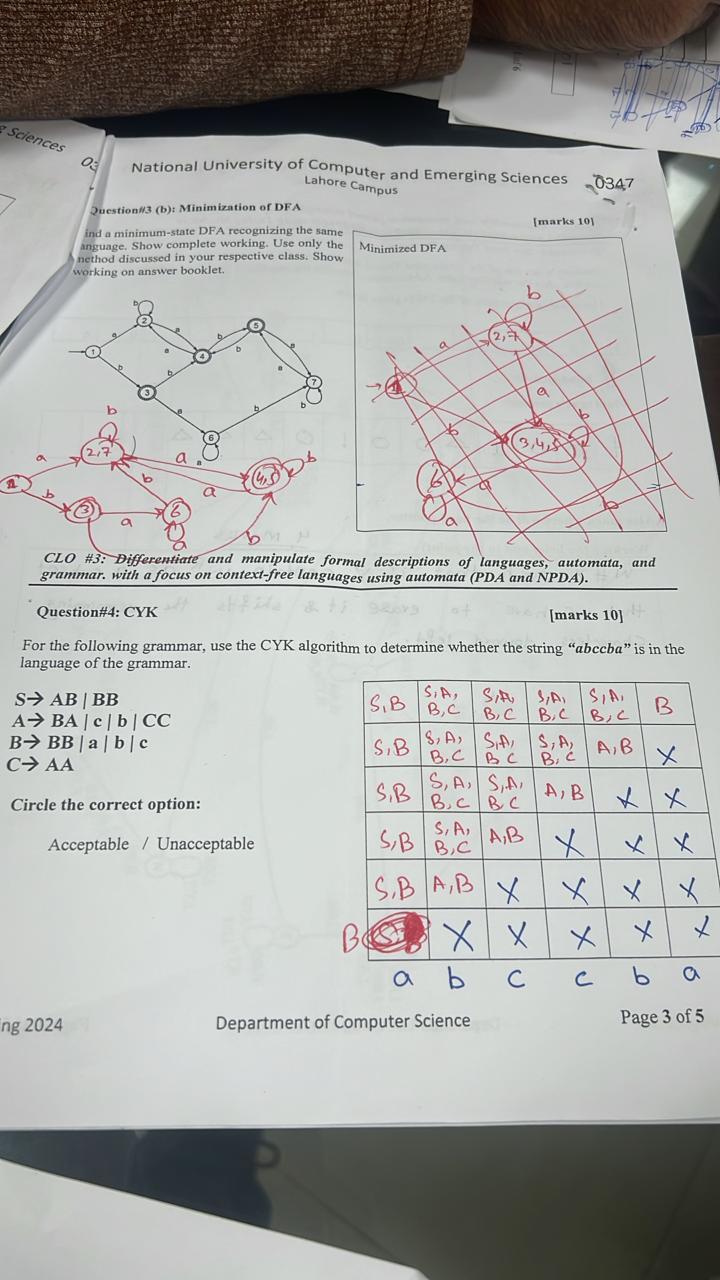 Sciences
National University of Computer and Emerging Sciences
Lahore Campus
0347
Question#3 (b): Minimization of DFA
[marks 10]
ind a minimum-state DFA recognizing the same
anguage. Show complete working. Use only the
method discussed in your respective class. Show
working on answer booklet.
Minimized DFA
b
a
2,7
a
b
3,4,5
b
6
a
a
b
1
2
3
4
5
6
7
a
b
b
a
a
b
a
b
b
a
b
a
b
b
1
a
2,7
b
a
a
4,5
b
b
3
a
6
a
b
b
CLO #3: Differentiate and manipulate formal descriptions of languages, automata, and
grammar. with a focus on context-free languages using automata (PDA and NPDA).
Question#4: CYK
[marks 10]
For the following grammar, use the CYK algorithm to determine whether the string “abccba” is in the
language of the grammar.
S→ AB | BB
A→ BA | c | b | CC
B→ BB | a | b | c
C→ AA
Circle the correct option:
Acceptable / Unacceptable
S,B S,A,B,C S,A,B,C S,A,B,C S,A,B,C B
S,B S,A,B,C S,A,B,C S,A,B,C A,B X
S,B S,A,B,C S,A,B,C A,B X X
S,B S,A,B,C A,B X X X
S,B A,B X X X X
B X X X X X
a b c c b a
ng 2024
Department of Computer Science
Page 3 of 5